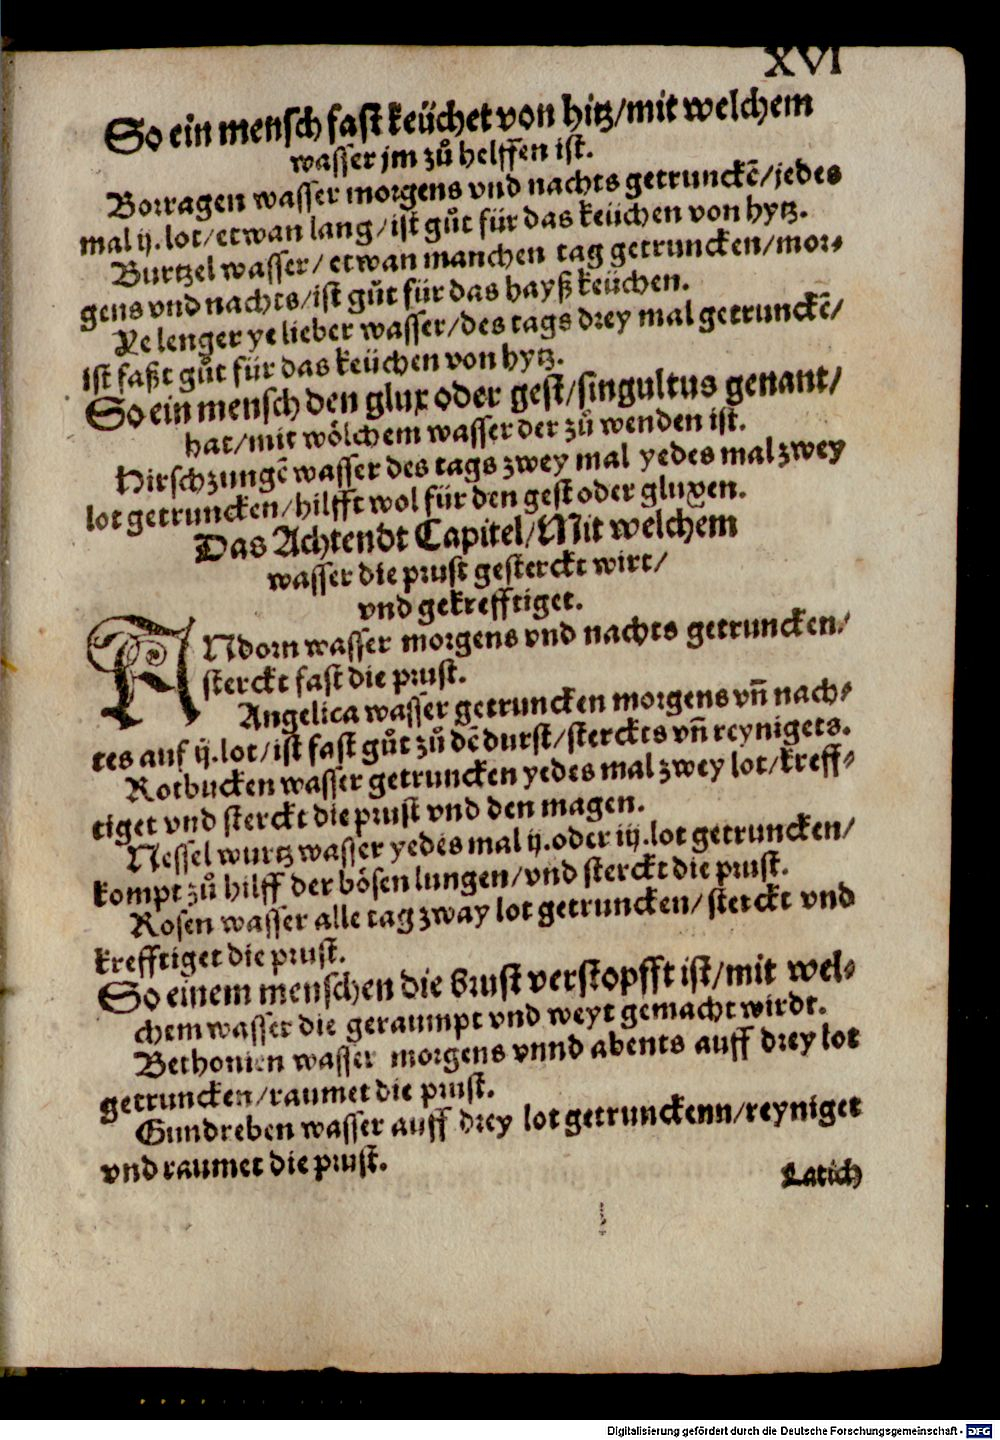 XVI
So ein mensch fast keüchet von hitz/mit welchem
wasser jm zů helffen ist.
Borragen wasser morgens vnd nachts getrunckē/jedes
mal ij. lot/etwan lang/ist gůt für das keüchen von hytz.
Burtzel wasser/etwan manchen tag getruncken/mor⸗
gens vnd nachts/ist gůt für das hayß keüchen.
Ye lenger ye lieber wasser/des tags drey mal getrunckē/
ist faßt gůt für das keüchen von hytz.
So ein mensch den glux oder gest/singultus genant/
hat/mit wölchem wasser der zů wenden ist.
Hirschzungē wasser des tags zwey mal yedes mal zwey
lot getruncken/hilfft wol für den gest oder gluxen.
Das Achtendt Capitel/Mit welchem
wasser die prust gesterckt wirt/
vnd gekrefftiget.
ANdorn wasser morgens vnd nachts getruncken/
sterckt fast die prust.
Angelica wasser getruncken morgens vñ nach⸗
tes auf ij. lot/ist fast gůt zů dē durst/sterckts vñ reynigets.
Rotbucken wasser getruncken yedes mal zwey lot/kreff⸗
tiget vnd sterckt die prust vnd den magen.
Nessel wurtz wasser yedes mal ij. oder iij. lot getruncken/
kompt zů hilff der bösen lungen/vnd sterckt die prust.
Rosen wasser alle tag zway lot getruncken/sterckt vnd
krefftiget die prust.
So einem menschen die brust verstopfft ist/mit wel⸗
chem wasser die geraumpt vnd weyt gemacht wirdt.
Bethonien wasser morgens vnnd abents auff drey lot
getruncken/raumet die prust.
Gundreben wasser auff drey lot getrunckenn/reyniget
vnd raumet die prust.
Latich
Digitalisierung gefördert durch die Deutsche Forschungsgemeinschaft - DFG